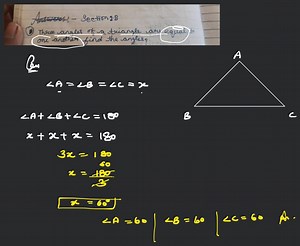 Section 2B
Three angles of a triangle are equal
one another find the angles.
A
∠A = ∠B = ∠C = x
B
C
∠A + ∠B + ∠C = 180
x + x + x = 180
3x = 180
60
x = 180
3
x = 60°
∠A = 60 | ∠B = 60 | ∠C = 60